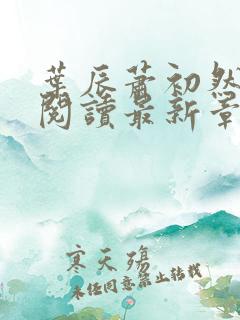 葉辰蕭初然
閱讀最新章
寒天殤
未任同意禁止转载